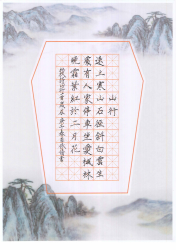 山行
遠上寒山石徑斜白雲生
處有人家停車坐愛楓林
晚霜葉紅於二月花